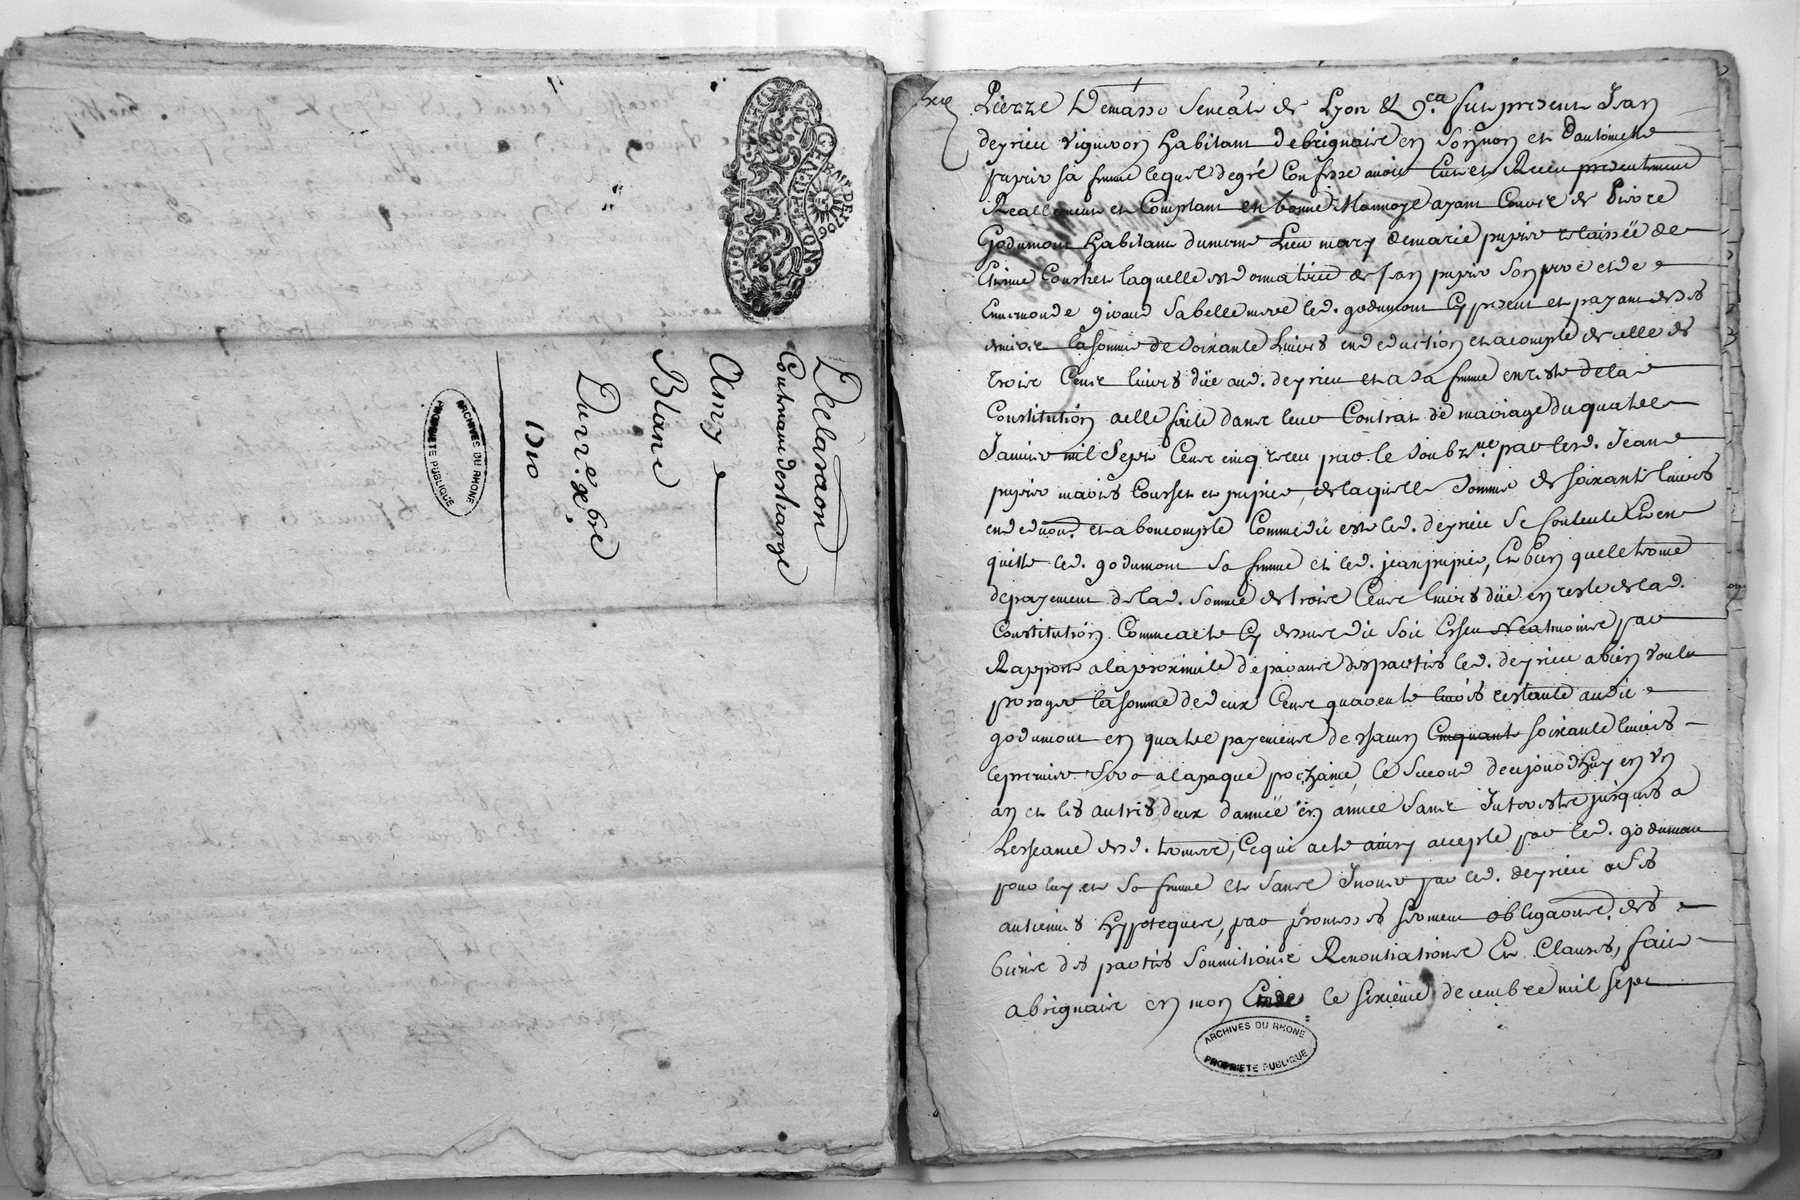 GEN.DE LYON
Declaraon
Contenant descharge
Amy
Blanc
Du 22e xbre
1710
ARCHIVES DU RHONE
PROPRIETE PUBLIQUE
Pierre Demasso Seneal de Lyon &ca fut present Jean
deyrieu vigneron habitant de brignaire en Lyonnois et dantoinette
pupier sa femme lequel de gré confesse avoir eu et Receu presentement
Reallement et comptant en bonne Monnoye ayant cours de Pierre
Godumont habitant du mesme Lieu mary de marie pupier relaissée de
Etienne Courset laquelle est donnatrice de Jean pupier son pere et de
Ennemonde givaud sa belle mere led. godumont cy present et payant des
la somme de soixante Livres en deduction et acompte de celle de
trois Cens livres düe aud. deyrieu et a sa femme en reste de la
Constitution a elle faite dans leur Contrat de mariage du quatre
Janvier mil Sept Cens cinq receu par le soubz.ne par led. Jean
pupier mariés Courset et pupier de laquelle somme de soixante livres
en deduon. et a bon compte comme dit est led. deyrieu se contente et en
quitte led. godumont sa femme et led. jean pupier, et bien que le terme
de payement de lad. somme de trois Cens livres düe en reste de lad.
Constitution comme a esté cy dessus dit soit escheu neatmoins par
Rapport a la proximité de parante des parties led. deyrieu a bien voulu
proroger la somme de deux Cens quarente livres restante audit
godumont en quatre payements de chacun cinquante soixante livres
le premier sera a la paque prochaine, le second de cejourd'huy en un
an et les autres deux d'année en année sans Interestz jusques a
Lesceance desd. termes, ce qui a esté ainsy accepté par led. godumont
pour luy et sa femme et sans Inover par led. deyrieu a ses
antiennes hypoteques, par promesses serment obligaons. des
biens des parties soumitions Renontiations et clauses, fait
a brignaire en mon Etude le sixieme decembre mil sept
ARCHIVES DU RHONE
PROPRIETE PUBLIQUE